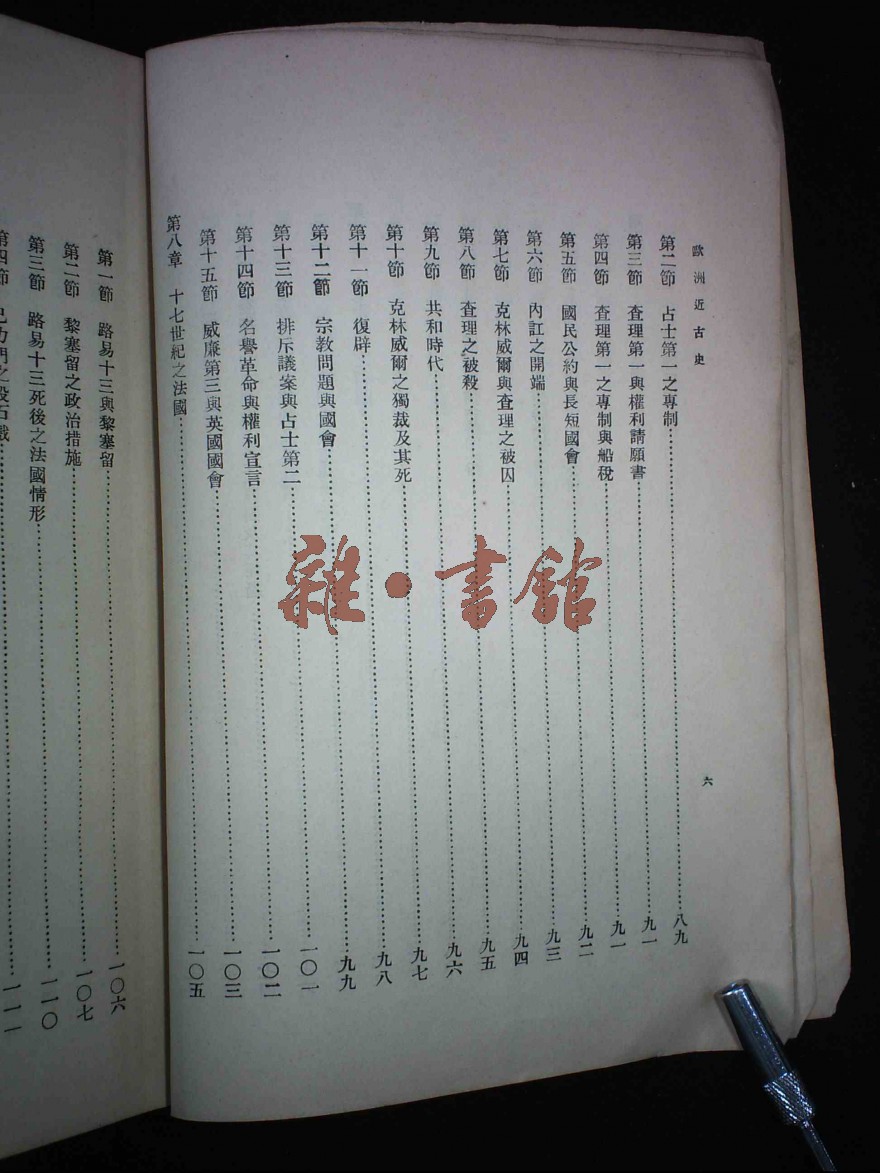 歐洲近古史
六
第二節 占士第一之專制……八九
第三節 查理第一與權利請願書……九一
第四節 查理第一之專制與船稅……九一
第五節 國民公約與長短國會……九二
第六節 內訌之開端……九三
第七節 克林威爾與查理之被囚……九四
第八節 查理之被殺……九五
第九節 共和時代……九六
第十節 克林威爾之獨裁及其死……九七
第十一節 復辟……九八
第十二節 宗教問題與國會……九九
第十三節 排斥議案與占士第二……一〇一
第十四節 名譽革命與權利宣言……一〇二
第十五節 威廉第三與英國國會……一〇三
第八章 十七世紀之法國……一〇五
第一節 路易十三與黎塞留……一〇六
第二節 黎塞留之政治措施……一〇七
第三節 路易十三死後之法國情形……一一〇
第四節……一一一
雜·書館